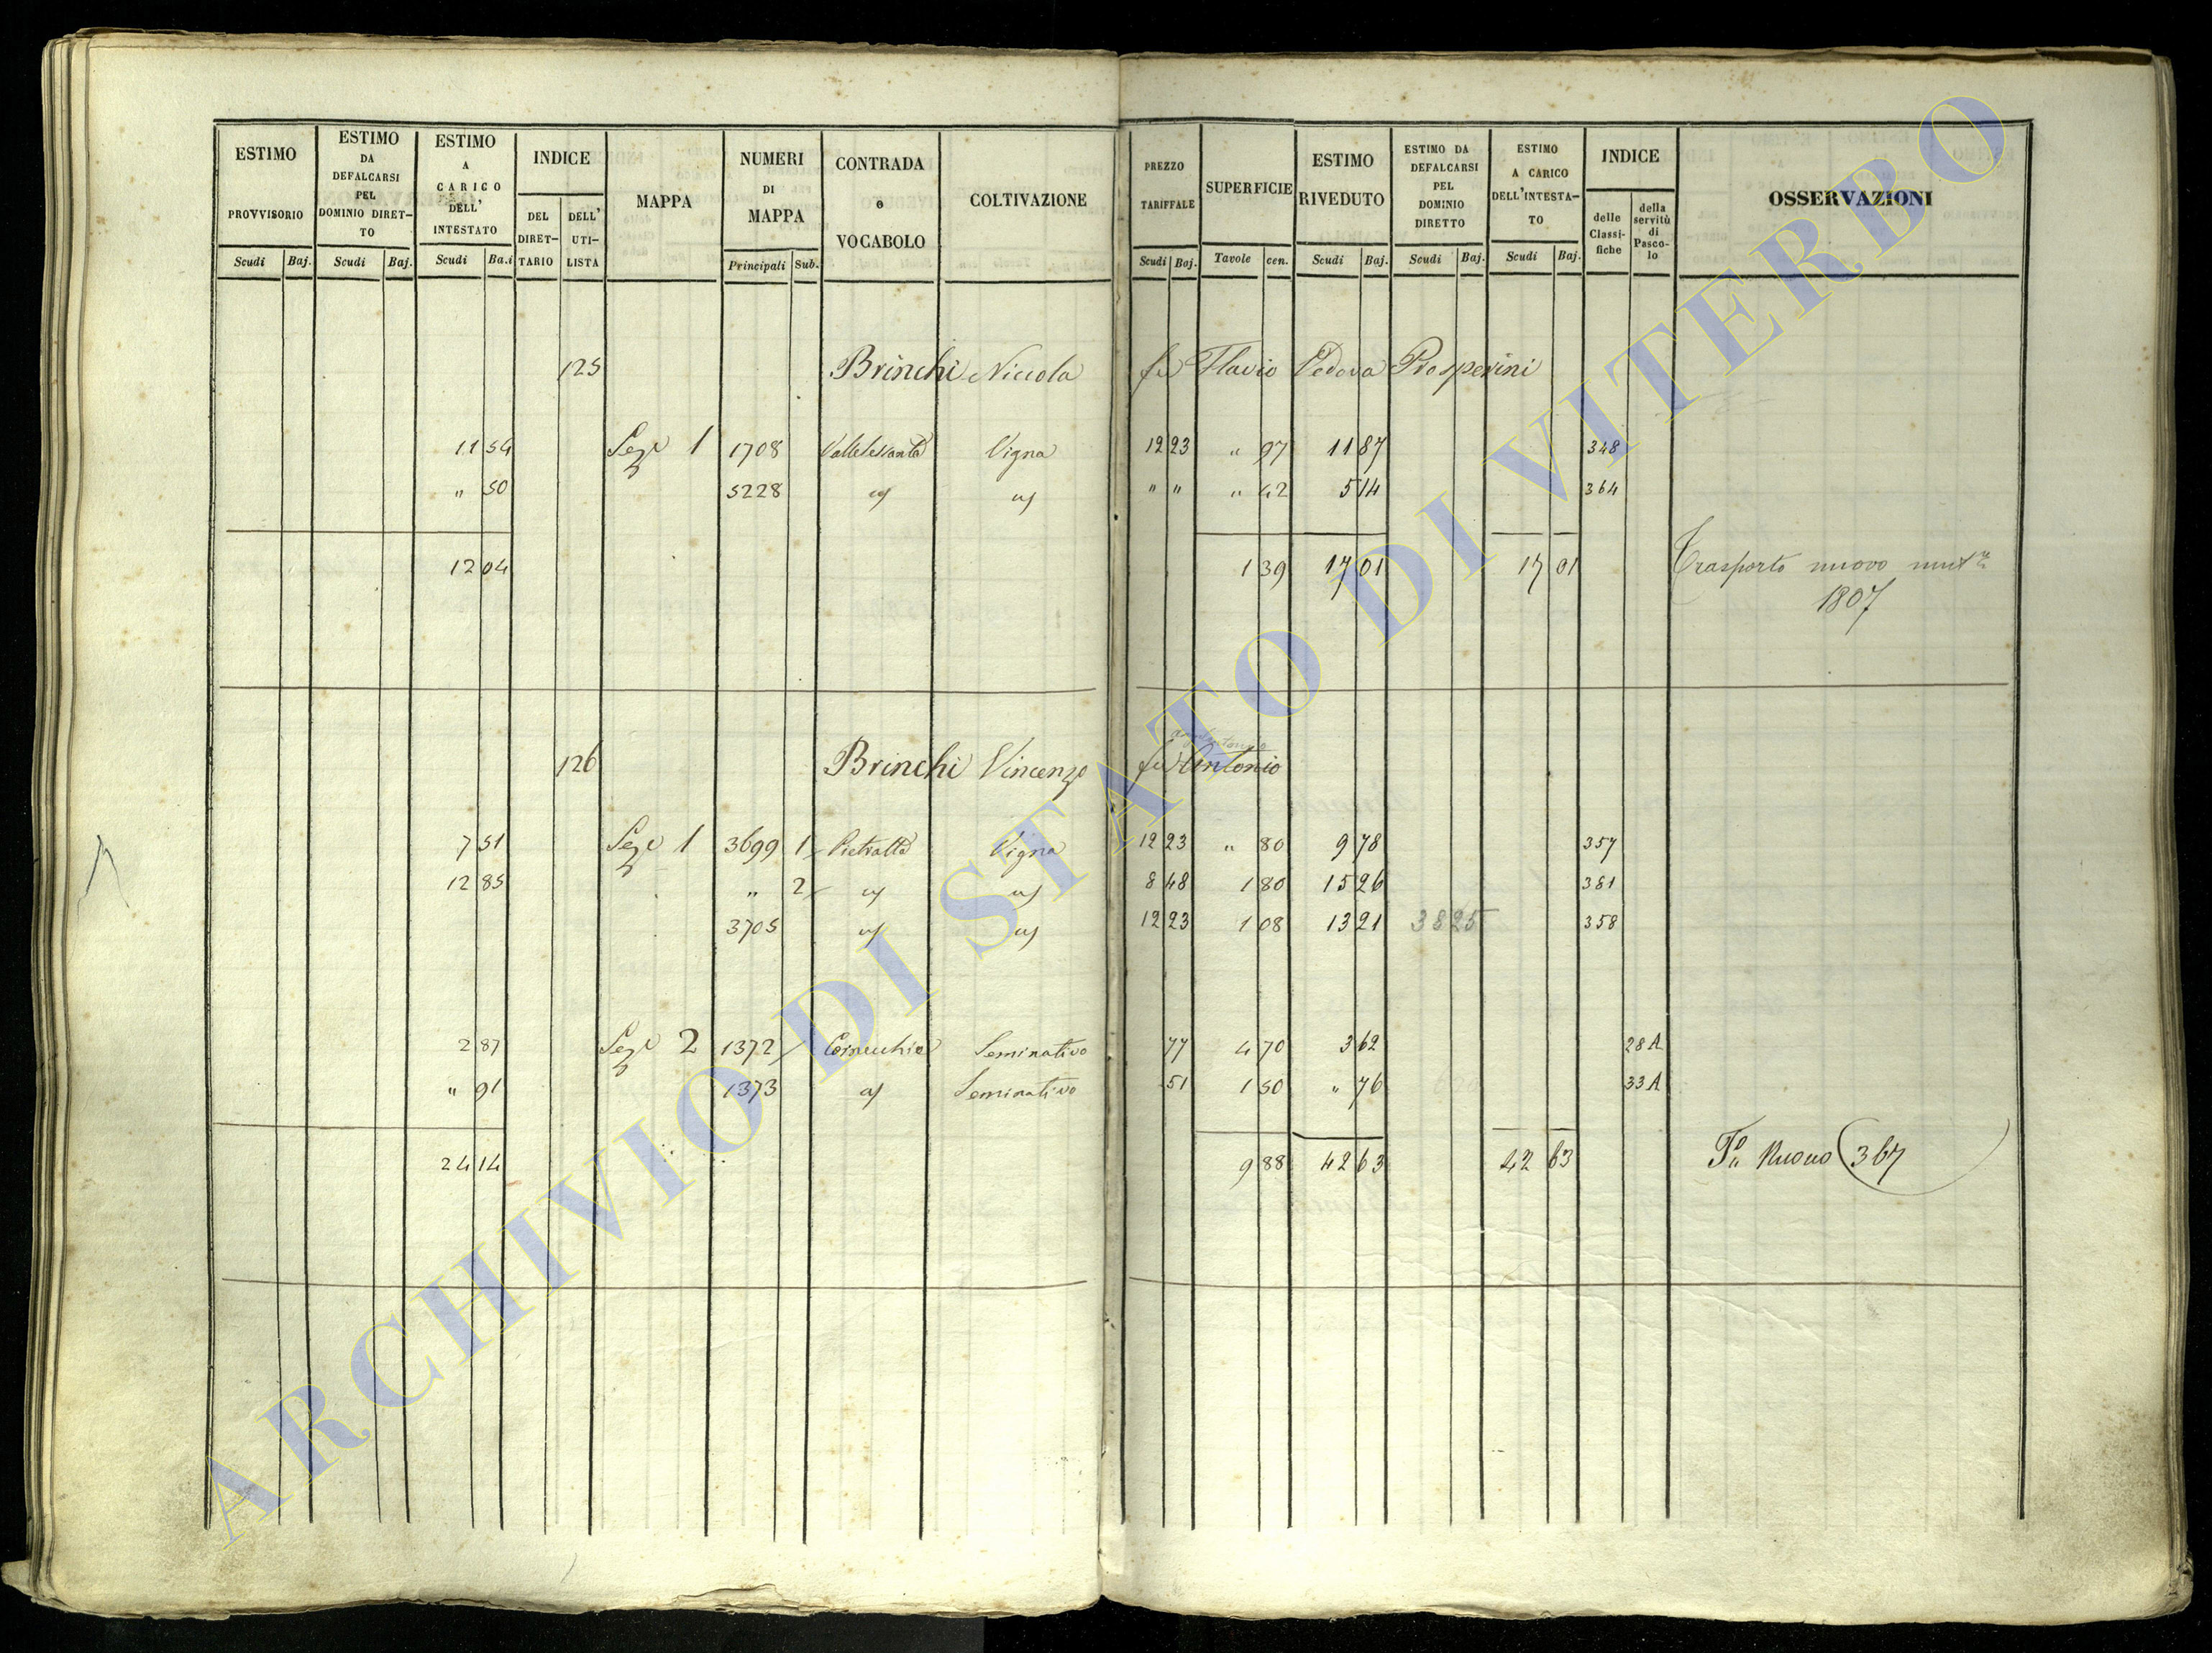 ESTIMO PROVVISORIO Scudi Baj.
ESTIMO DA DEFALCARSI PEL DOMINIO DIRET-TO Scudi Baj.
ESTIMO A CARICO DELL' INTESTATO Scudi Ba.i
INDICE DEL DIRET-TARIO DELL' UTI-LISTA
MAPPA
NUMERI DI MAPPA Principali Sub.
CONTRADA e VOCABOLO
COLTIVAZIONE
PREZZO TARIFFALE Scudi Baj.
SUPERFICIE Tavole cen.
ESTIMO RIVEDUTO Scudi Baj.
ESTIMO DA DEFALCARSI PEL DOMINIO DIRETTO Scudi Baj.
ESTIMO A CARICO DELL'INTESTA-TO Scudi Baj.
INDICE delle Classi-fiche della servitù di Pasco-lo
OSSERVAZIONI
125 Brinchi Niccola fu Flavio Vedova Prosperini
11 54 Seze 1 1708 Vigna 12 23 " 97 11 87 348
" 50 5228 " " " 42 5 14 364
12 04 1 39 17 01 17 01 Trasporto nuovo
1807
126 Brinchi Vincenzo fu Antonio
7 51 Seze 1 3699 1 Pietratta Vigna 12 23 " 80 9 78 357
12 85 " 2 8 48 1 80 15 26 381
3705 12 23 1 08 13 21 38 25 358
2 87 Seze 2 1372 Cornecchio Seminativo 77 4 70 3 62 28 A
" 91 1373 Seminativo 51 1 50 " 76 33 A
24 14 9 88 42 63 42 63 Nuovo 367
ARCHIVIO DI STATO DI VITERBO